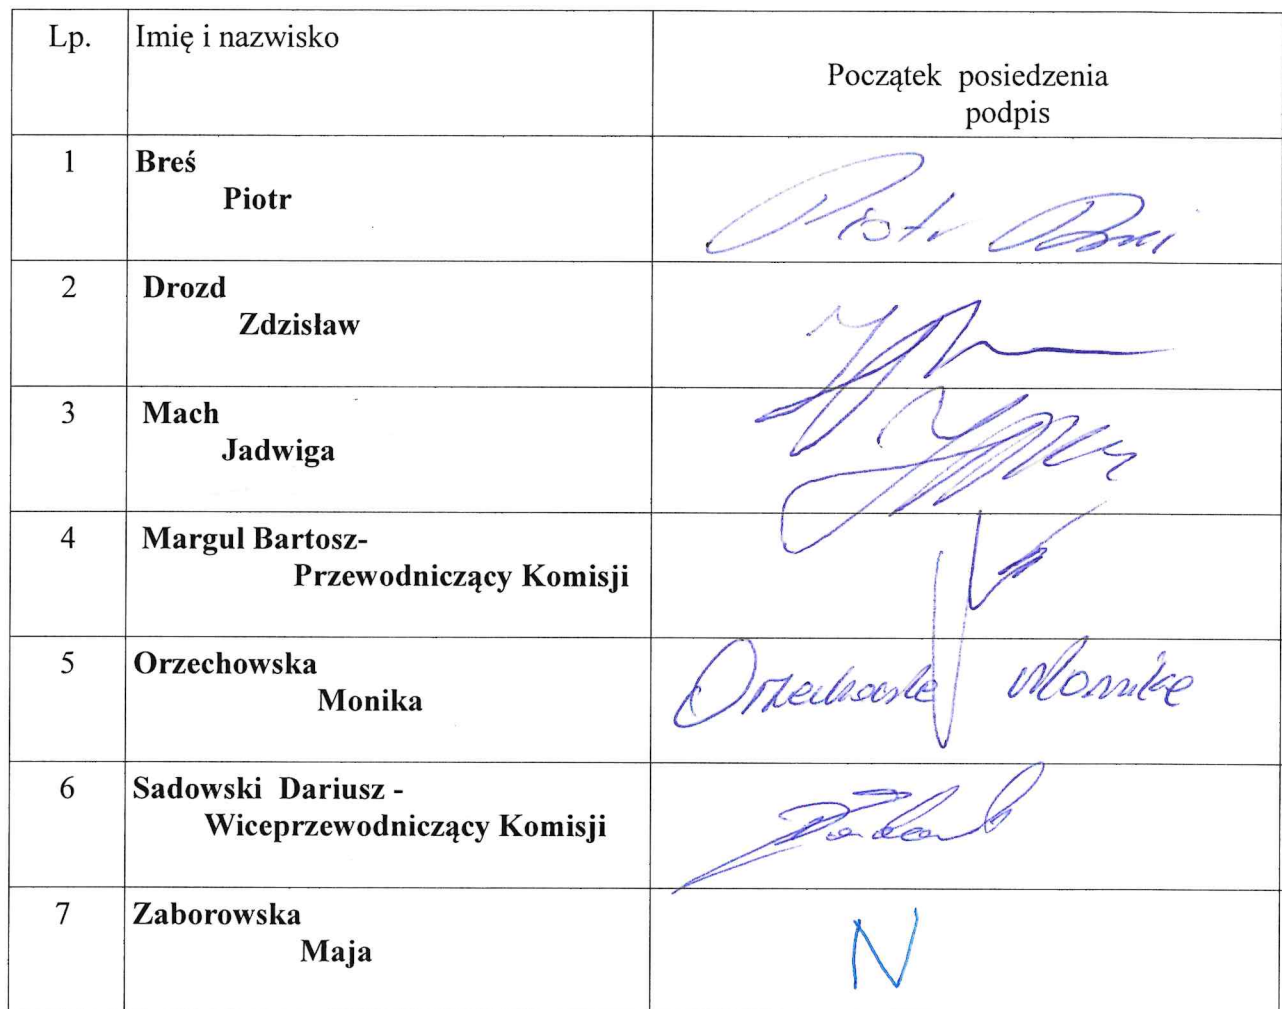 Lp. Imię i nazwisko
Początek posiedzenia
podpis
1 Breś
Piotr
Piotr
2 Drozd
Zdzisław
3 Mach
Jadwiga
4 Margul Bartosz-
Przewodniczący Komisji
5 Orzechowska
Monika
Orzechowska Monika
6 Sadowski Dariusz -
Wiceprzewodniczący Komisji
7 Zaborowska
Maja
N